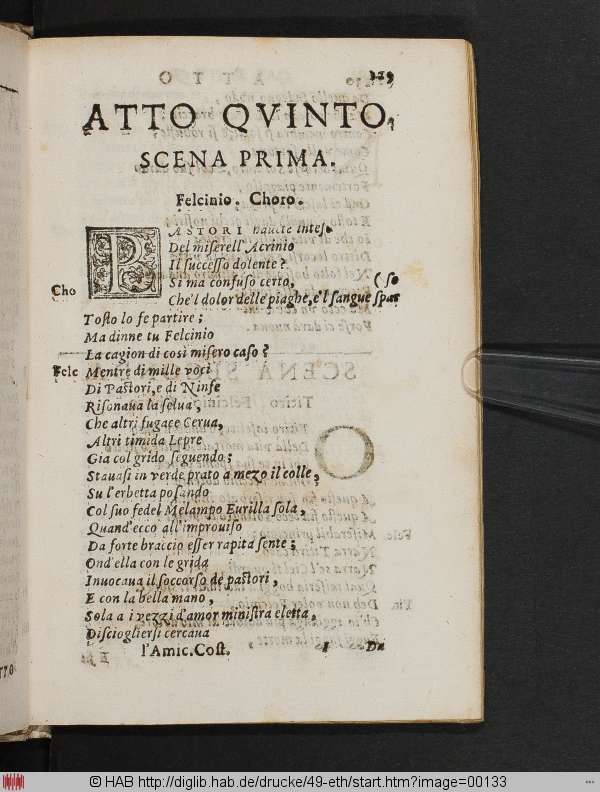 129
ATTO QVINTO.
SCENA PRIMA.
Felcinio. Choro.
PASTORI hauete inteso
Del miserell' Acrinio
Il successo dolente?
Cho Si ma confuso certo, (so
Che'l dolor delle piaghe, e'l sangue spar
Tosto lo fe partire;
Ma dinne tu Felcinio
La cagion di cosi misero caso?
Felc Mentre di mille voci
Di Pastori, e di Ninfe
Risonaua la selua,
Che altri fugace Cerua,
Altri timida Lepre
Gia col grido seguendo;
Stauasi in verde prato a mezo il colle,
Su l'erbetta posando
Col suo fedel Melampo Eurilla sola,
Quand'ecco all'improuiso
Da forte braccio esser rapita sente;
Ond'ella con le grida
Inuocaua il soccorso de pastori,
E con la bella mano,
Sola a i vezzi d'amor ministra eletta,
Disciogliersi cercaua
l'Amic. Cost. I Da
© HAB http://diglib.hab.de/drucke/49-eth/start.htm?image=00133